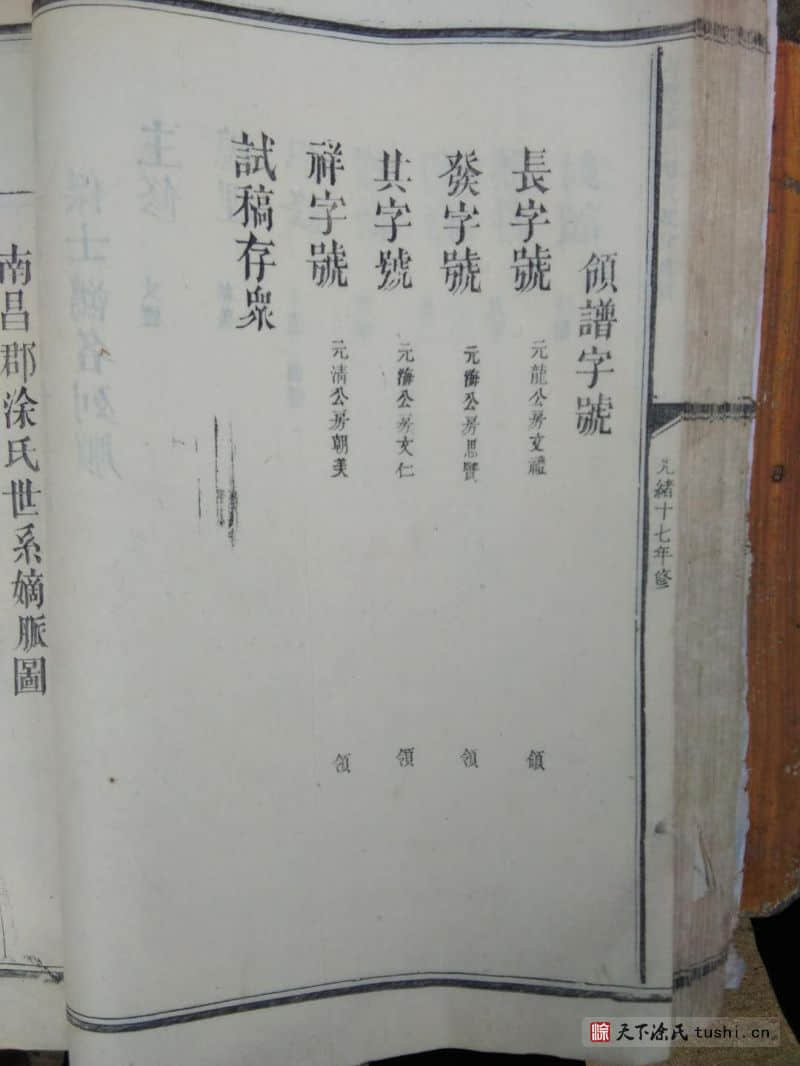 光緒十七年修
領譜字號
長字號 元龍公房文禮 領
發字號 元海公房思賢 領
其字號 元海公房文仁 領
祥字號 元清公房朝美 領
試稿存衆
南昌郡涂氏世系嫡脈圖
天下涂氏 tushi.cn